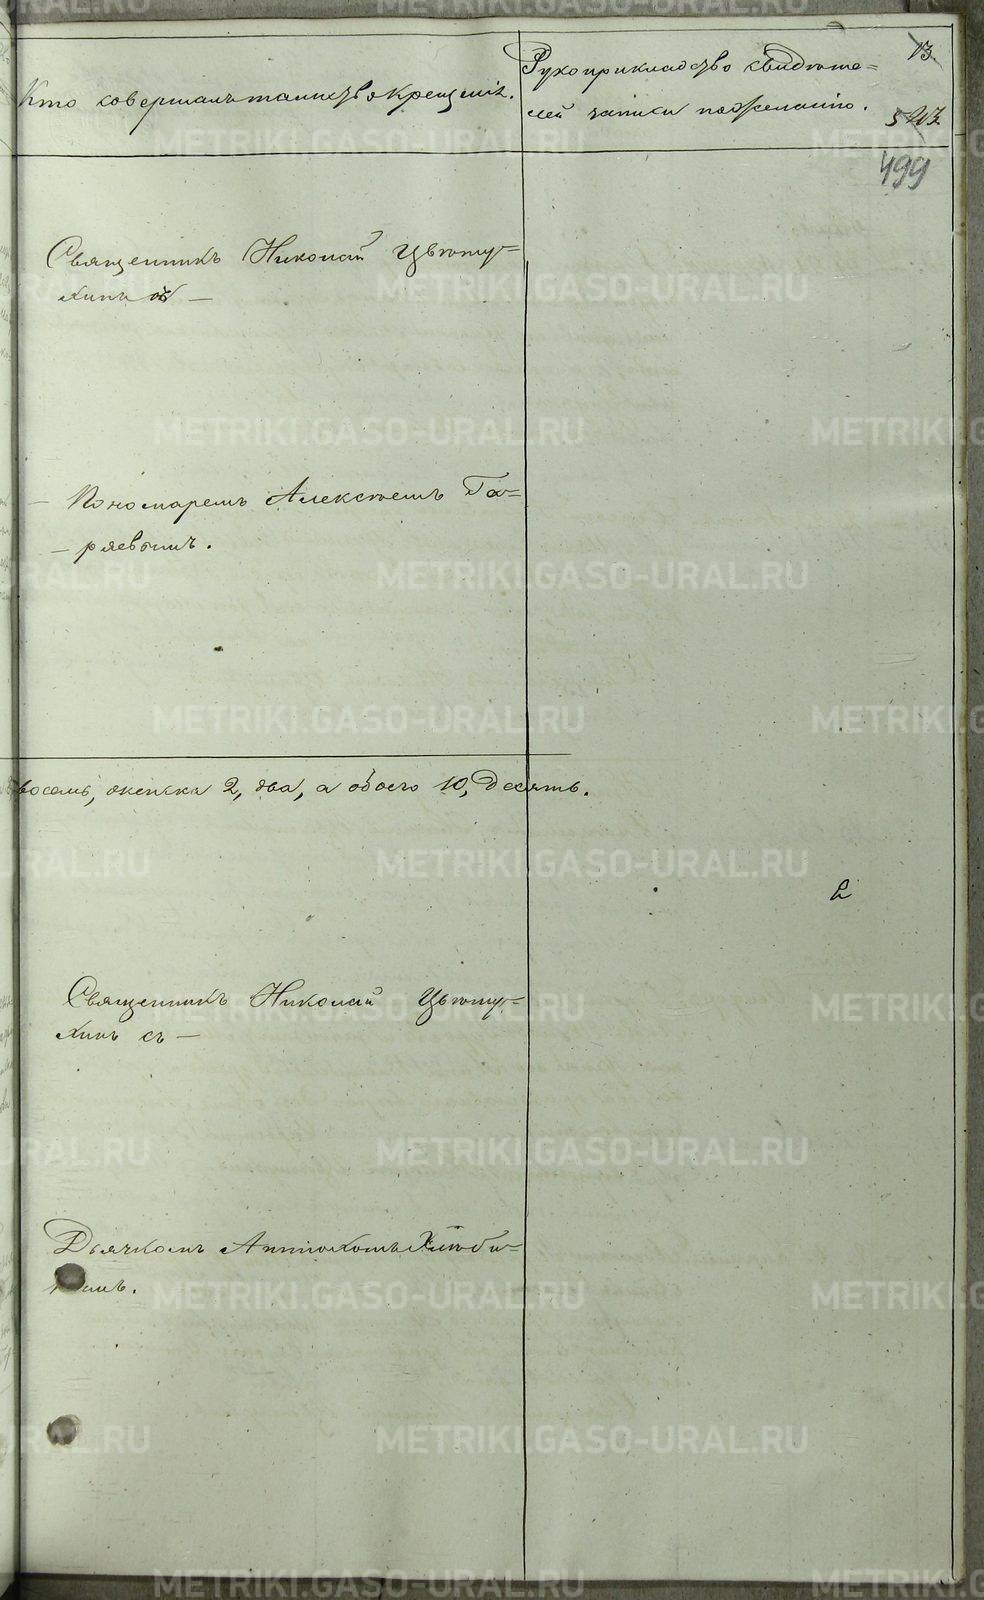 13.
Кто совершалъ таинство крещенія.
Рукоприкладство свидѣте=
лей записи по желанію.
499
Священникъ Николай Цвѣту=
хинъ съ —
— Пономаремъ Алексѣемъ Га=
— ряевымъ.
восемь, женска 2, два, а обоего 10, Десять.
Священникъ Николай Цвѣту=
хинъ съ —
Дьячкомъ Антіохомъ Хлѣби=
METRIKI.GASO-URAL.RU